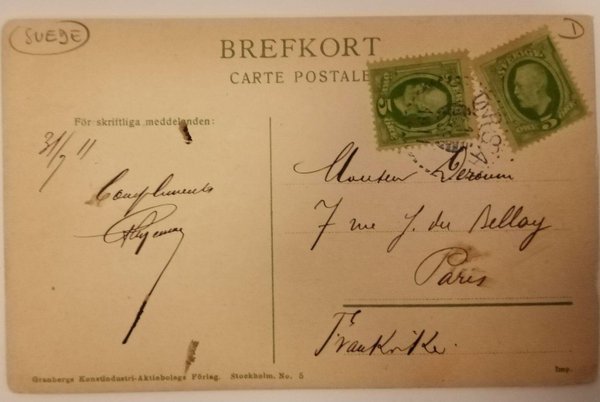 SUEDE
D
BREFKORT
CARTE POSTALE
För skriftliga meddelanden:
31/7 11
Compliments
SVERIGE
5
5
TORSA
Monsieur
7 rue J. du Bellay
Paris
Frankrike.
Granbergs Konstindustri-Aktiebolags Förlag. Stockholm. No. 5
Imp.